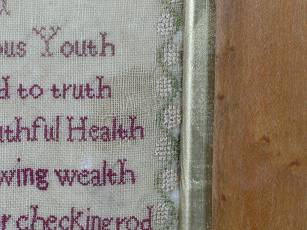 ous Youth
d to truth
uthful Health
wing wealth
r checking rod